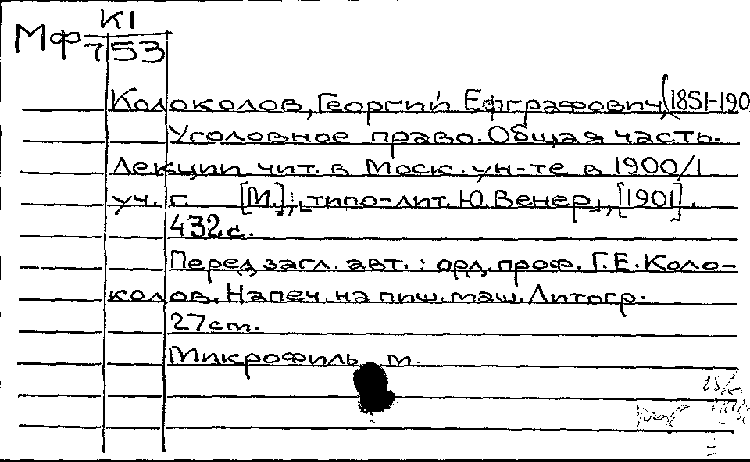 К1
Мф 7/53
Колоколов, Георгий Ефграфович, (1851-190
Уголовное право. Общая часть.
Лекции чит. в Моск. ун-те в 1900/1
уч. г. [М.], типо-лит. Ю. Венер, [1901].
432 с.
Перед загл. авт.: орд. проф. Г. Е. Коло-
колов. Напеч. на пиш. маш. Литогр.
27 cm.
Микрофильм.